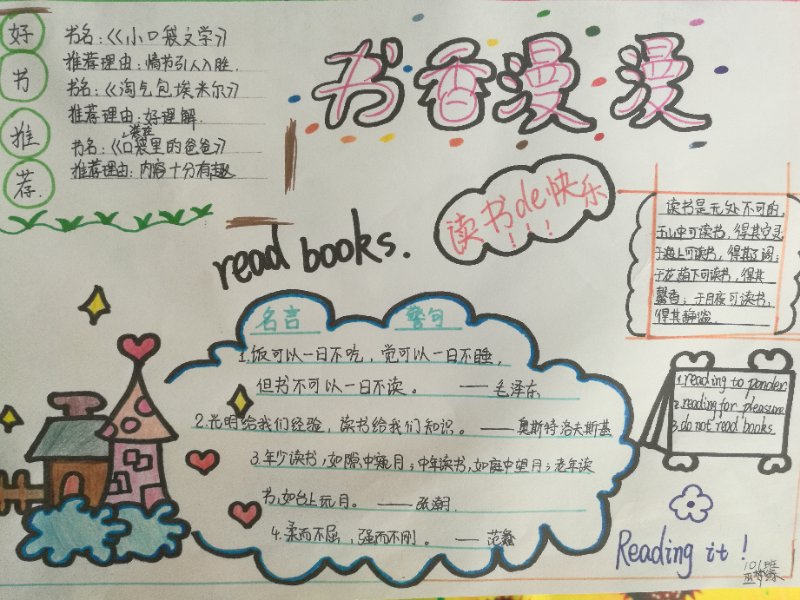 好书推荐
书名:《小口袋文学》
推荐理由:情书引人入胜.
书名:《淘气包埃米尔》
推荐理由:好理解.
书名:《口袋里的爸爸》
推荐理由:内容十分有趣
书香漫漫
读书de快乐
!!!
read books.
读书是无处不可的,
于山中可读书,得其空灵
于海上可读书,得其了阔;
于花荫下可读书,得其
馨香;于月夜可读书,
得其静谧.
名言 警句
1.饭可以一日不吃,觉可以一日不睡,
但书不可以一日不读。 ——毛泽东
2.光明给我们经验,读书给我们知识。 ——奥斯特洛夫斯基
3.年少读书,如隙中窥月;中年读书,如庭中望月;老年读
书,如台上玩月。 ——张潮.
4.柔而不屈,强而不刚。 ——范蠡
1.reading to ponder
2.reading for pleasure
3.do not read books.
Reading it!
101班